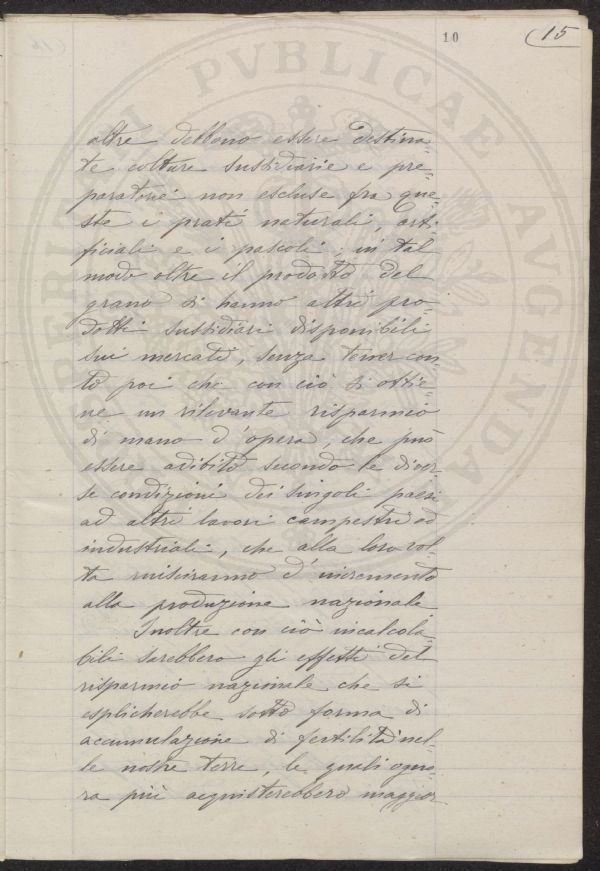 10
15
altre debbono essere destina-
te colture sussidiarie e pre-
paratorie non escluse fra que-
ste i prati naturali, arti-
ficiali e i pascoli: in tal
modo oltre il prodotto del
grano si hanno altri pro-
dotti sussidiari disponibili
sui mercati, senza tener con
to poi che con ciò si ottie-
ne un rilevante risparmio
di mano d'opera, che può
essere adibito secondo le diver-
se condizioni dei singoli paesi
ad altri lavori campestri od
industriali, che alla loro vol-
ta riusciranno d'incremento
alla produzione nazionale
Inoltre con ciò incalcola-
bili sarebbero gli effetti del
risparmio nazionale che si
esplicherebbe sotto forma di
accumulazione di fertilità nel-
le nostre terre, le quali ogno-
ra più acquisterebbero maggior
PVBLICAE AVGENDAE